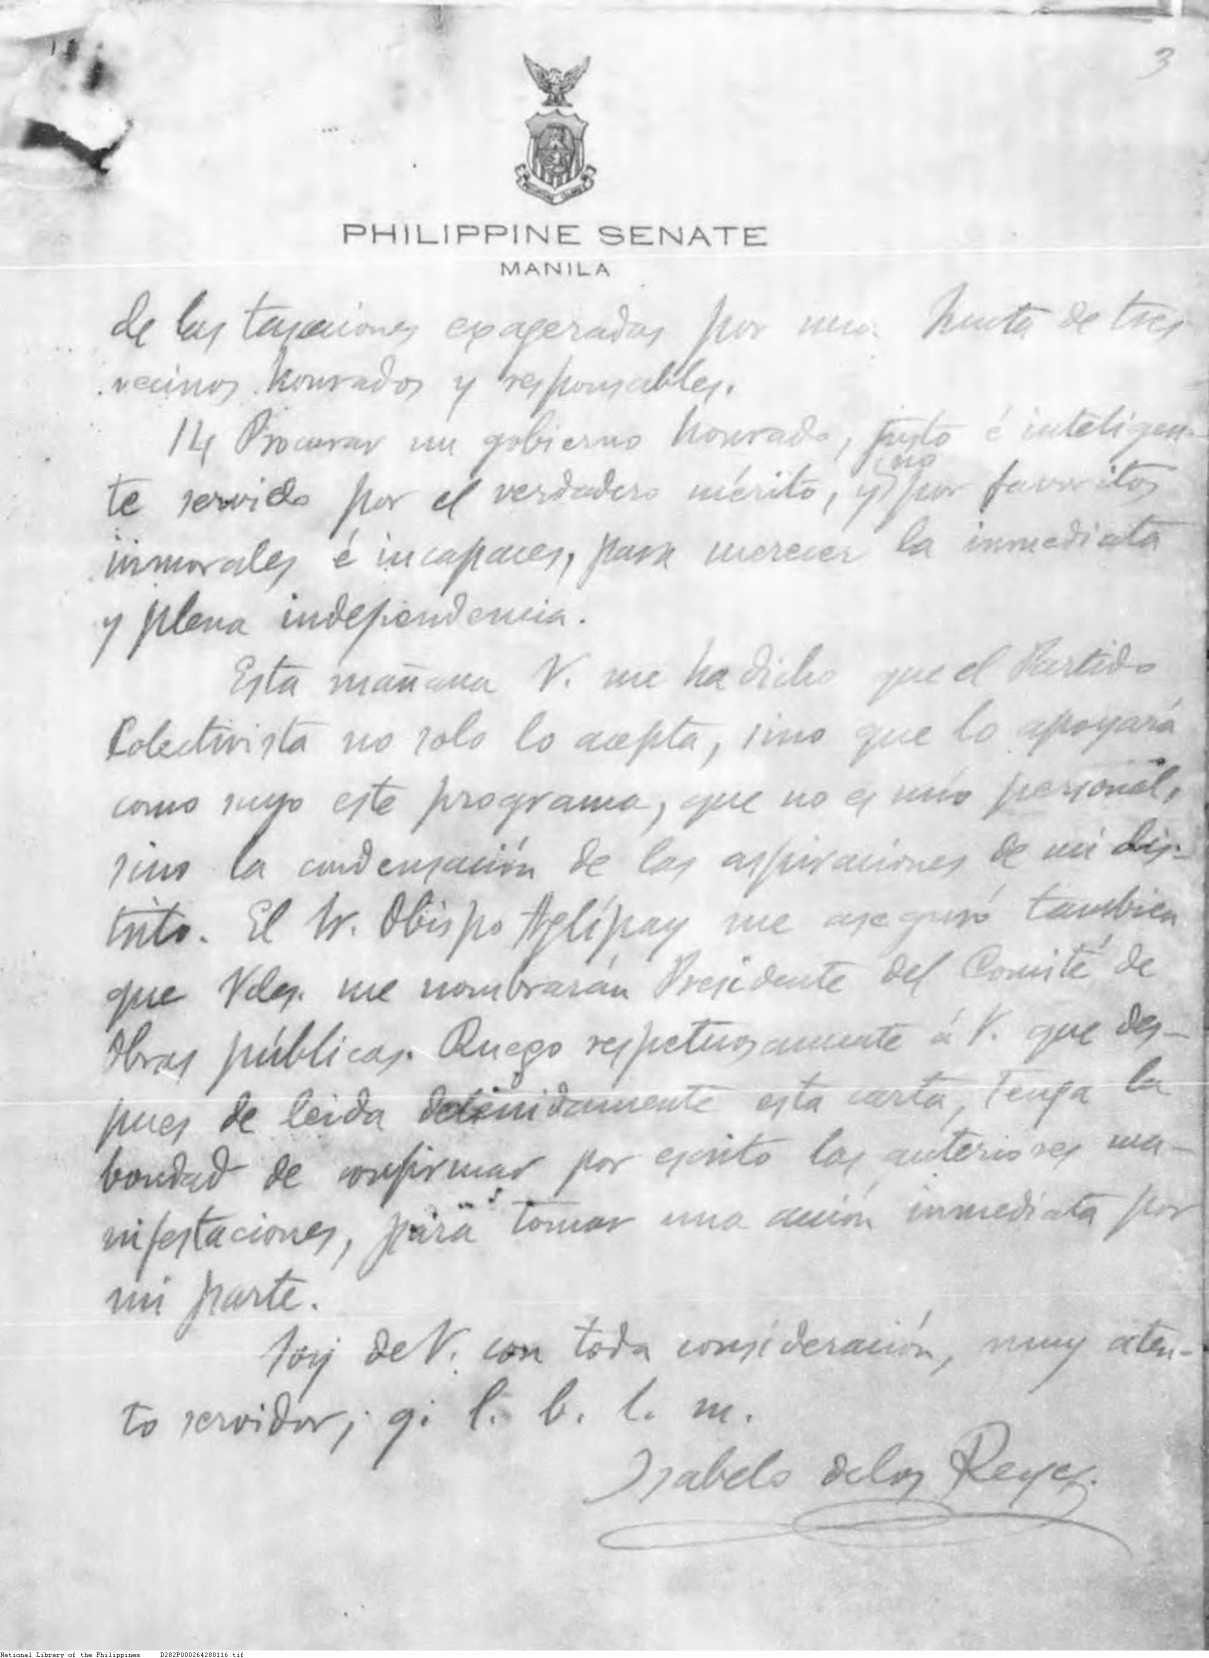 3
PHILIPPINE SENATE
MANILA
de las tasaciones exageradas por una Junta de tres
vecinos honrados y responsables.
14 Procurar un gobierno honrado, justo é inteligen-
te servido por el verdadero mérito, y no por favoritos
inmorales é incapaces, para merecer la inmediata
y plena independencia.
Esta mañana V. me ha dicho que el Partido
Colectivista no solo lo acepta, sino que lo apoyará
como suyo este programa, que no es mío personal,
sino la condensación de las aspiraciones de mi dis-
trito. El Sr. Obispo Aglípay me aseguró tambien
que Vdes. me nombrarán Presidente del Comité de
Obras públicas. Ruego respetuosamente á V. que des-
pues de leida detenidamente esta carta, tenga la
bondad de confirmar por escrito las anteriores ma-
nifestaciones, para tomar una acción inmediata por
mi parte.
Soy de V. con toda consideración, muy aten-
to servidor, q. l. b. l. m.
Isabelo de los Reyes.
National Library of the Philippines D282P000264288116.tif